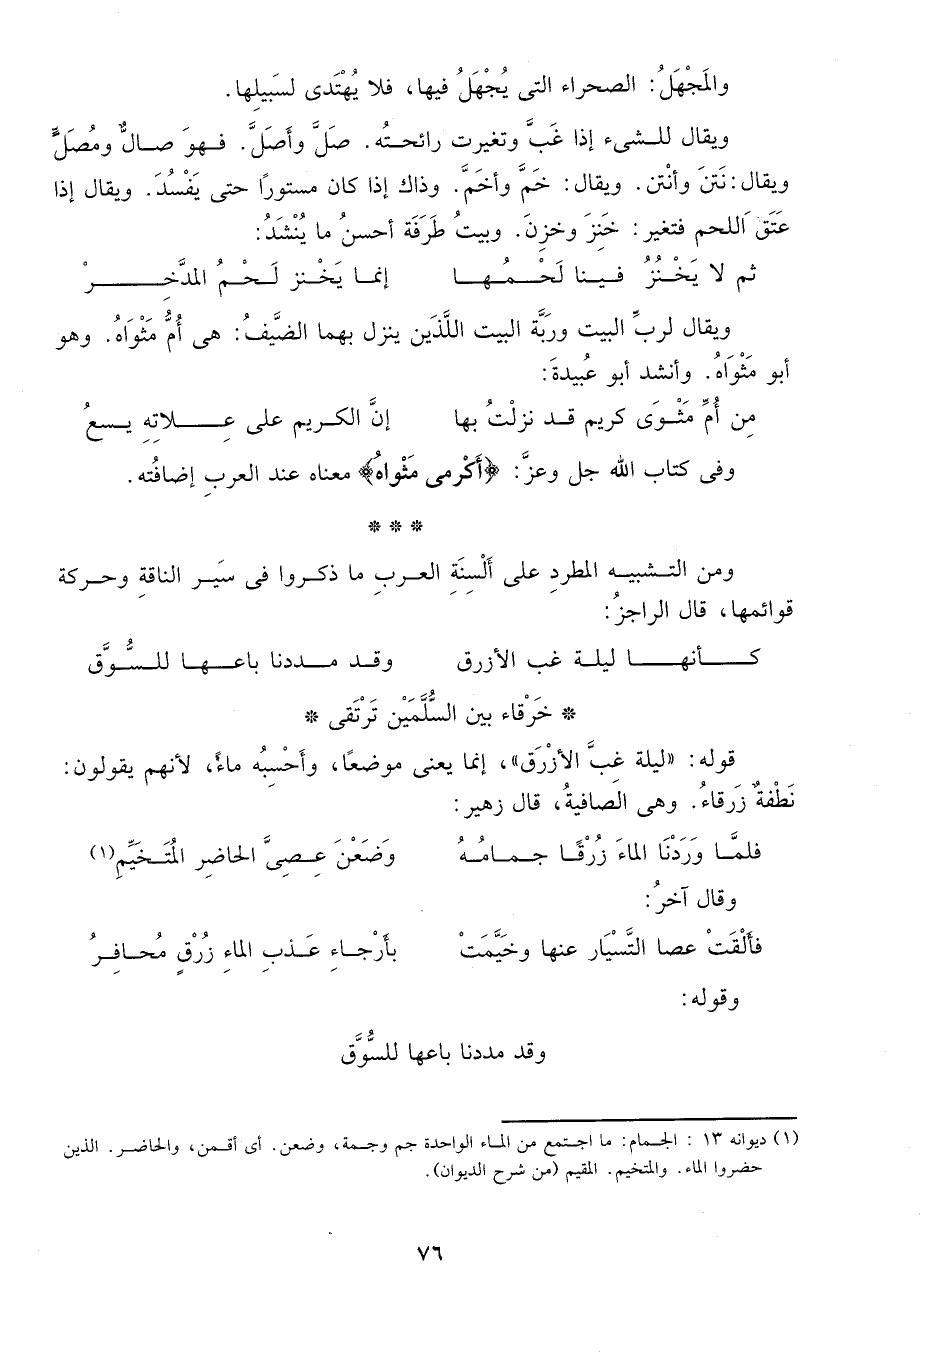 والمَجْهَلُ: الصحراء التى يُجْهَلُ فيها، فلا يُهْتَدى لسَبيلِها.
ويقال للشىء إذا غَبَّ وتغيرت رائحتُه. صَلَّ وأصَلَّ. فهوَ صالٌّ ومُصَلٌّ
ويقال: نَتنَ وأنْتن. ويقال: خَمَّ وأخَمَّ. وذاك إذا كان مستورًا حتى يَفْسُدَ. ويقال إذا
عَتَقَ اللحم فتغير: خَنِزَ وخزِنَ. وبيتُ طَرَفَة أحسنُ ما يُنْشَدُ:
ثم لا يَخْنُزُ فينا لَحْمُها إنما يَخْنز لَحْمُ المدَّخِرْ
ويقال لربِّ البيت ورَبَّة البيت اللَّذَين ينزل بهما الضَّيفُ: هى أُمُّ مَثْوَاهُ. وهو
أبو مَثْوَاهُ. وأنشد أبو عُبيدةَ:
مِن أُمِّ مَثْوَى كريم قد نزلْتُ بها إنَّ الكريم على عِلاتهِ يسعُ
وفى كتاب الله جل وعزَّ: ﴿أَكْرمى مَثْواهُ﴾ معناه عند العربِ إضافتُه.
* * *
ومن التشبيه المطردِ على ألْسِنَةِ العربِ ما ذكروا فى سَير الناقةِ وحركة
قوائمها، قال الراجزُ:
كأنها ليلة غب الأزرق وقد مددنا باعها للسُّوَّق
* خَرْقاء بين السُّلَّمَيْن تَرتَقى *
قوله: «ليلة غبَّ الأزْرَق»، إنما يعنى موضعًا، وأحْسِبُه ماءً، لأنهم يقولون:
نَطْفةٌ زَرقاءُ. وهى الصافيةُ، قال زهير:
فلمَّا وَرَدْنَا الماءَ زُرْقًا جمامُهُ وَضَعْنَ عِصىَّ الحاضِرِ المُتَخَيِّمِ(١)
وقال آخرُ:
فأَلْقَتْ عصا التَّسْيَار عنها وخَيَّمَتْ بأَرْجاءِ عَذبِ الماءِ زُرْقٍ مُحافِرُ
وقوله:
وقد مددنا باعها للسُّوَّق
(١) ديوانه ١٣ : الجمام: ما اجتمع من الماء الواحدة جم وجمة، وضعن. أى أقمن، والحاضر. الذين
حضروا الماء. والمتخيم. المقيم (من شرح الديوان).
٧٦